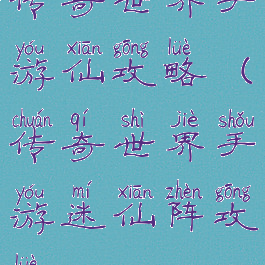 传奇世界手
yóu xiān gōng lüè
游仙攻略(
chuán qí shì jiè shǒu
传奇世界手
yóu mí xiān zhèn gōng
游迷仙阵攻
lüè